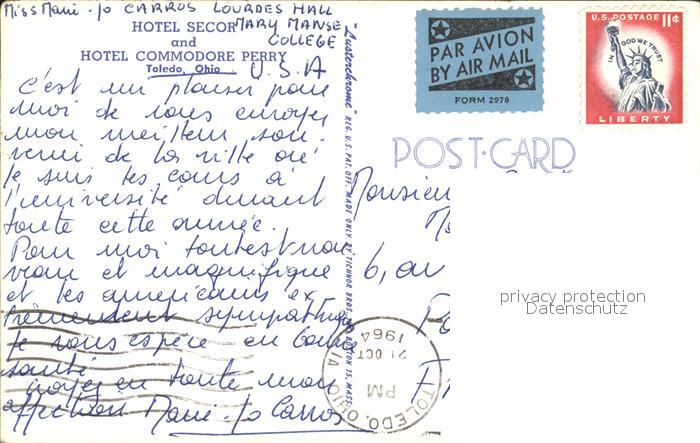 Miss Marie-Jo CARROS LOURDES HALL
MARY MANSE
COLLEGE
HOTEL SECOR
and
HOTEL COMMODORE PERRY
Toledo, Ohio U.S.A
C'est un plaisir pour
moi de vous envoyer
mon meilleur sou-
venir de la ville où
je suis les cours à
l'université durant
toute cette année.
Pour moi tout est nou
veau et magnifique
et les américains ex
trêmement sympathiques
Je vous espère en bonne
santé
Croyez en toute mon
affection Marie-Jo Carros
"Lusterchrome" REG. U.S. PAT. OFF. MADE ONLY BY TICHNOR BROS. BOSTON 15, MASS.
PAR AVION
BY AIR MAIL
FORM 2978
U.S. POSTAGE 11¢
IN GOD WE TRUST
LIBERTY
POST-CARD
Monsieur
6, av
TOLEDO, OHIO
PM
21 OCT
1964
privacy protection
Datenschutz